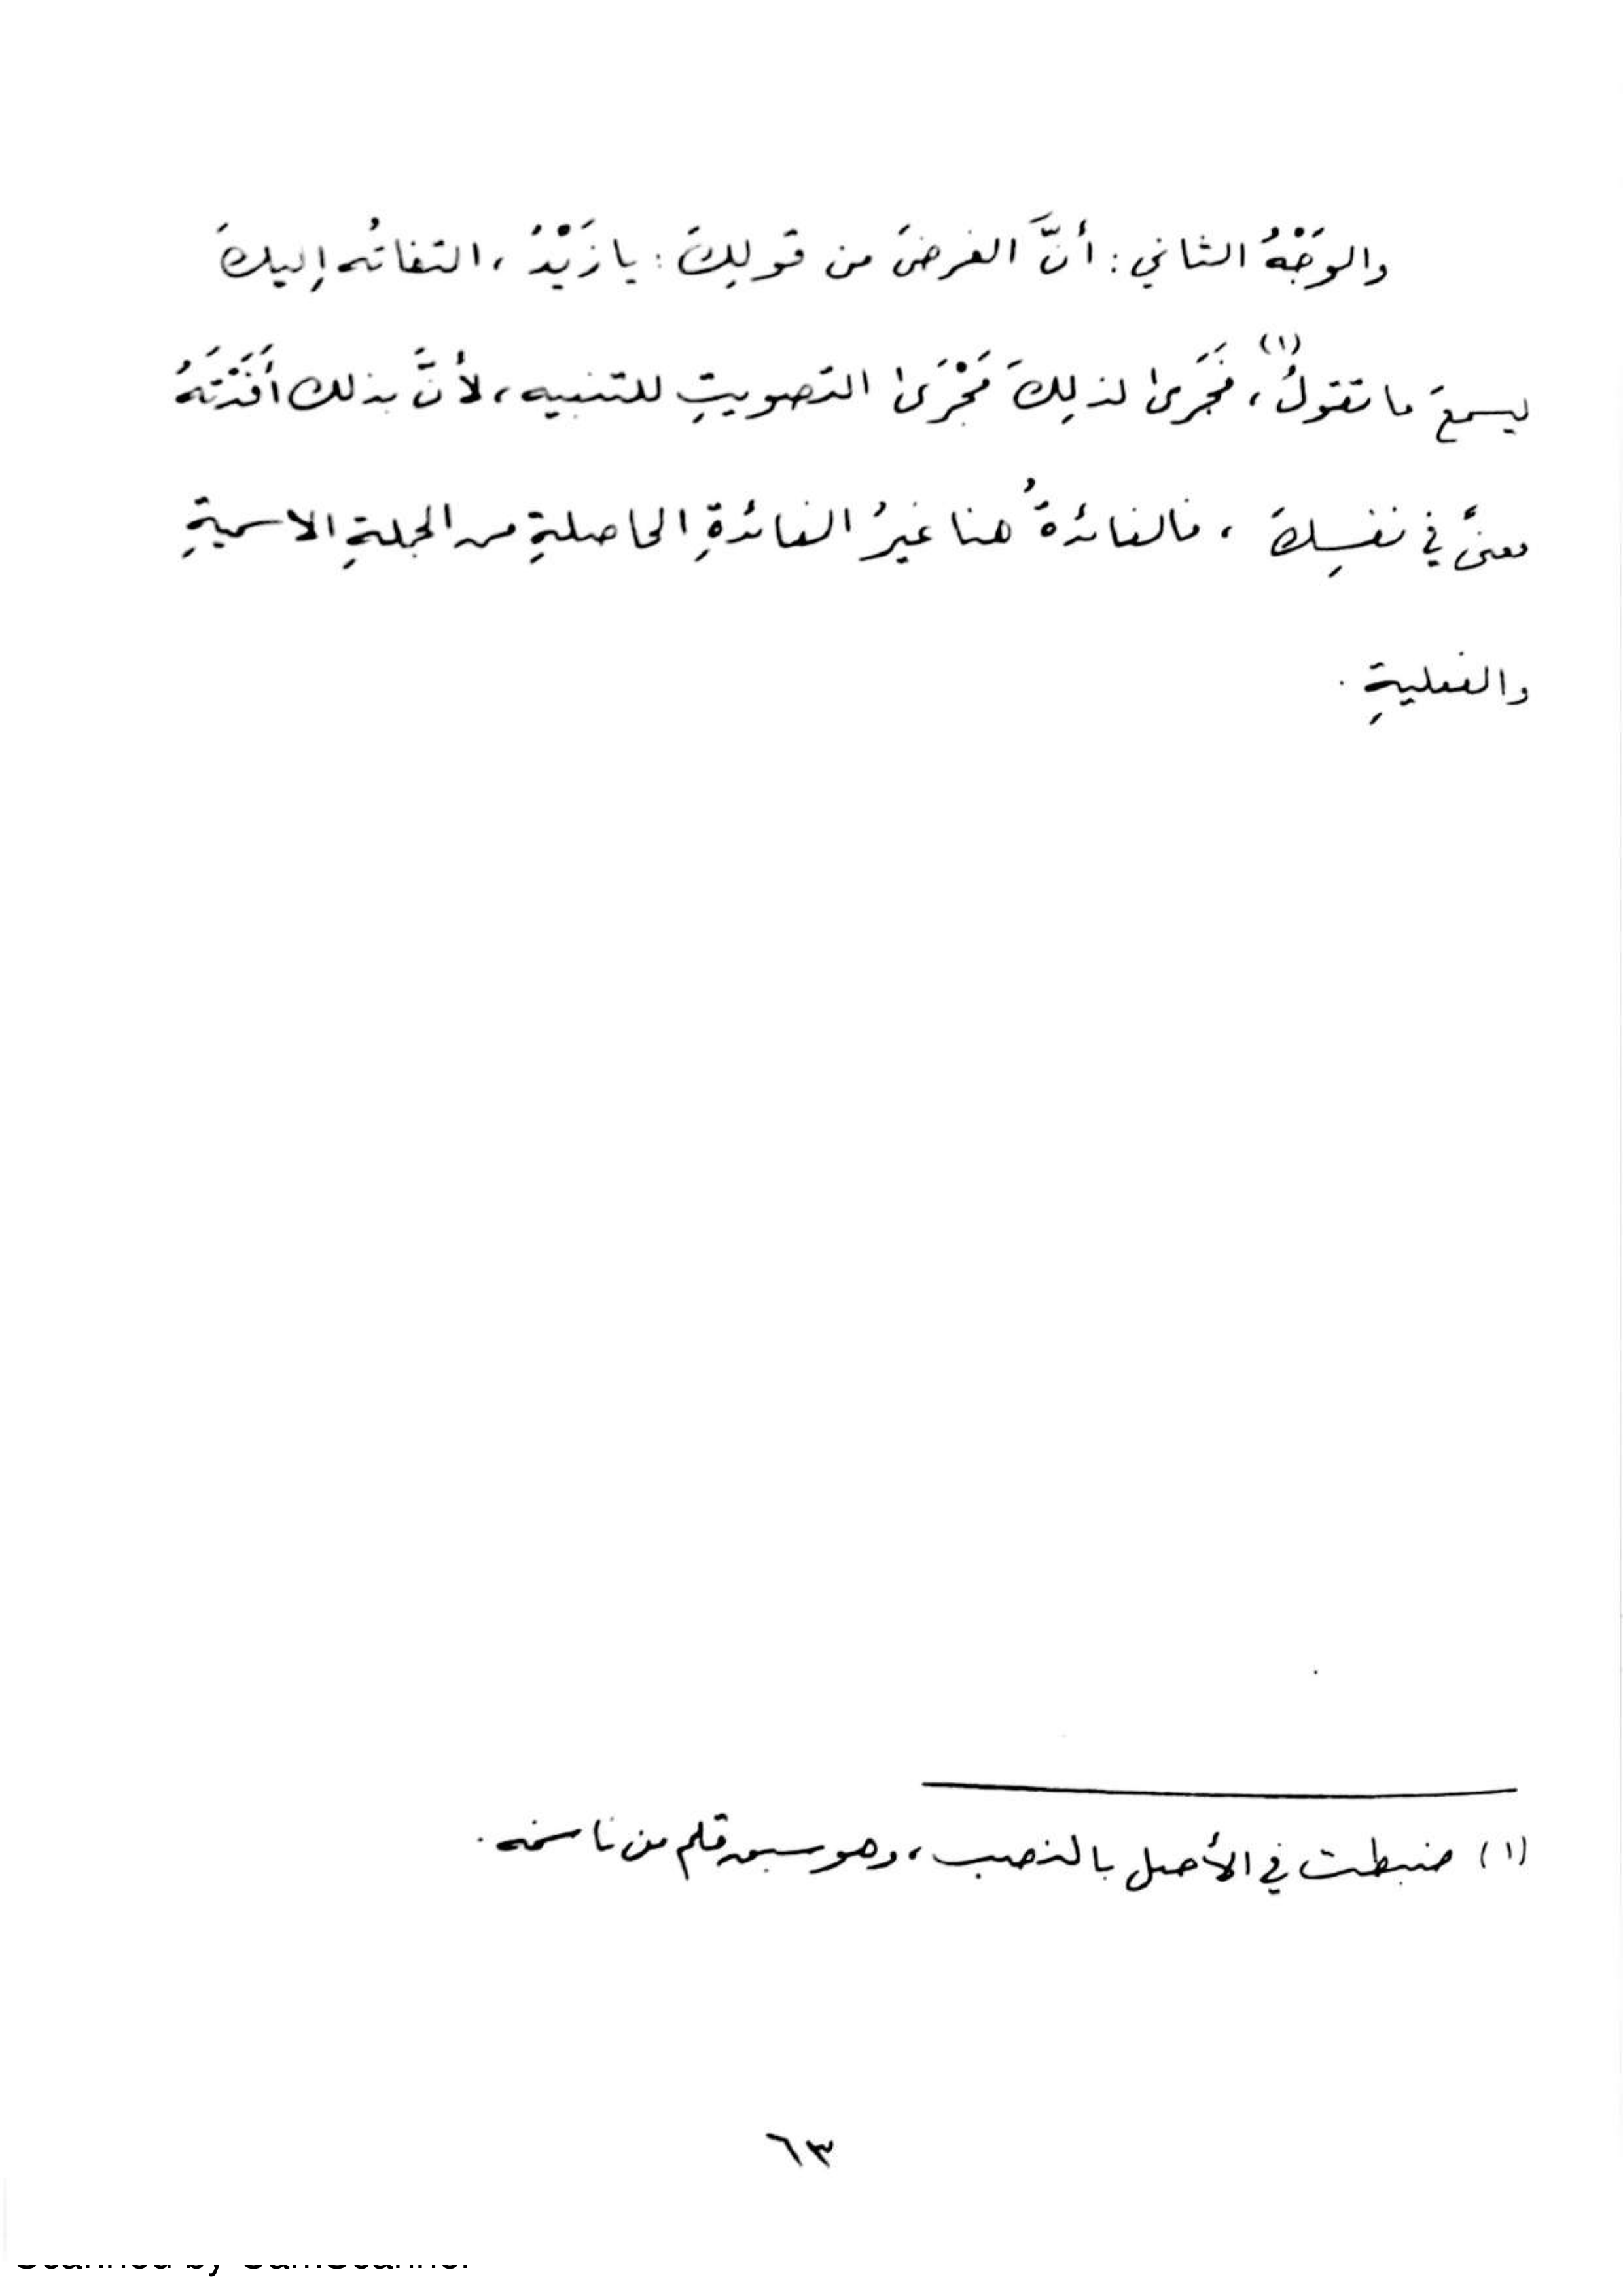 والوَجْهُ الثاني : أنَّ الغرضَ من قولِكَ : يا زَيْدُ ، التفاتُه إليكَ
ليسمعَ ما تقولُ(١)، فَجَرَى لذلِكَ مَجْرَى التصويتِ للتنبيه ، لأنَّ بذلك أَفَدْتَهُ
معنىً في نفسِكَ ، فالفائدةُ هنا غيرُ الفائدةِ الحاصلةِ من الجملةِ الاسميةِ
والفعليةِ .
(١) ضبطت في الأصل بالنصب ، وهو سبق قلم من ناسخه .
٦٣
Scanned by CamScanner